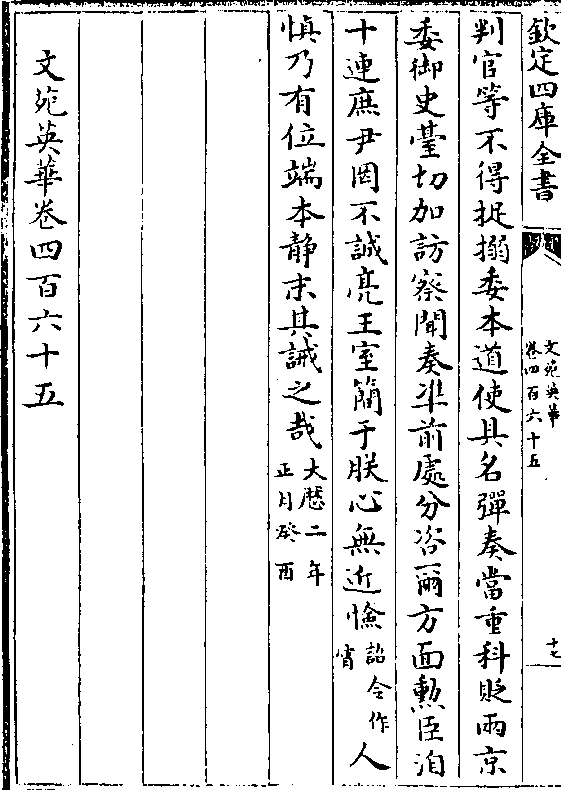 欽定四庫全書
文苑英華
卷四百六十五
十七
判官等不得捉搦委本道使具名彈奏當重科貶兩京
委御史臺切加訪察聞奏準前處分咨爾方面勲臣洎
十連庶尹罔不誠亮王室簡于朕心無近憸詔令作𪫺人
慎乃有位端本静末其誡之哉大厯二年正月癸酉
文苑英華卷四百六十五